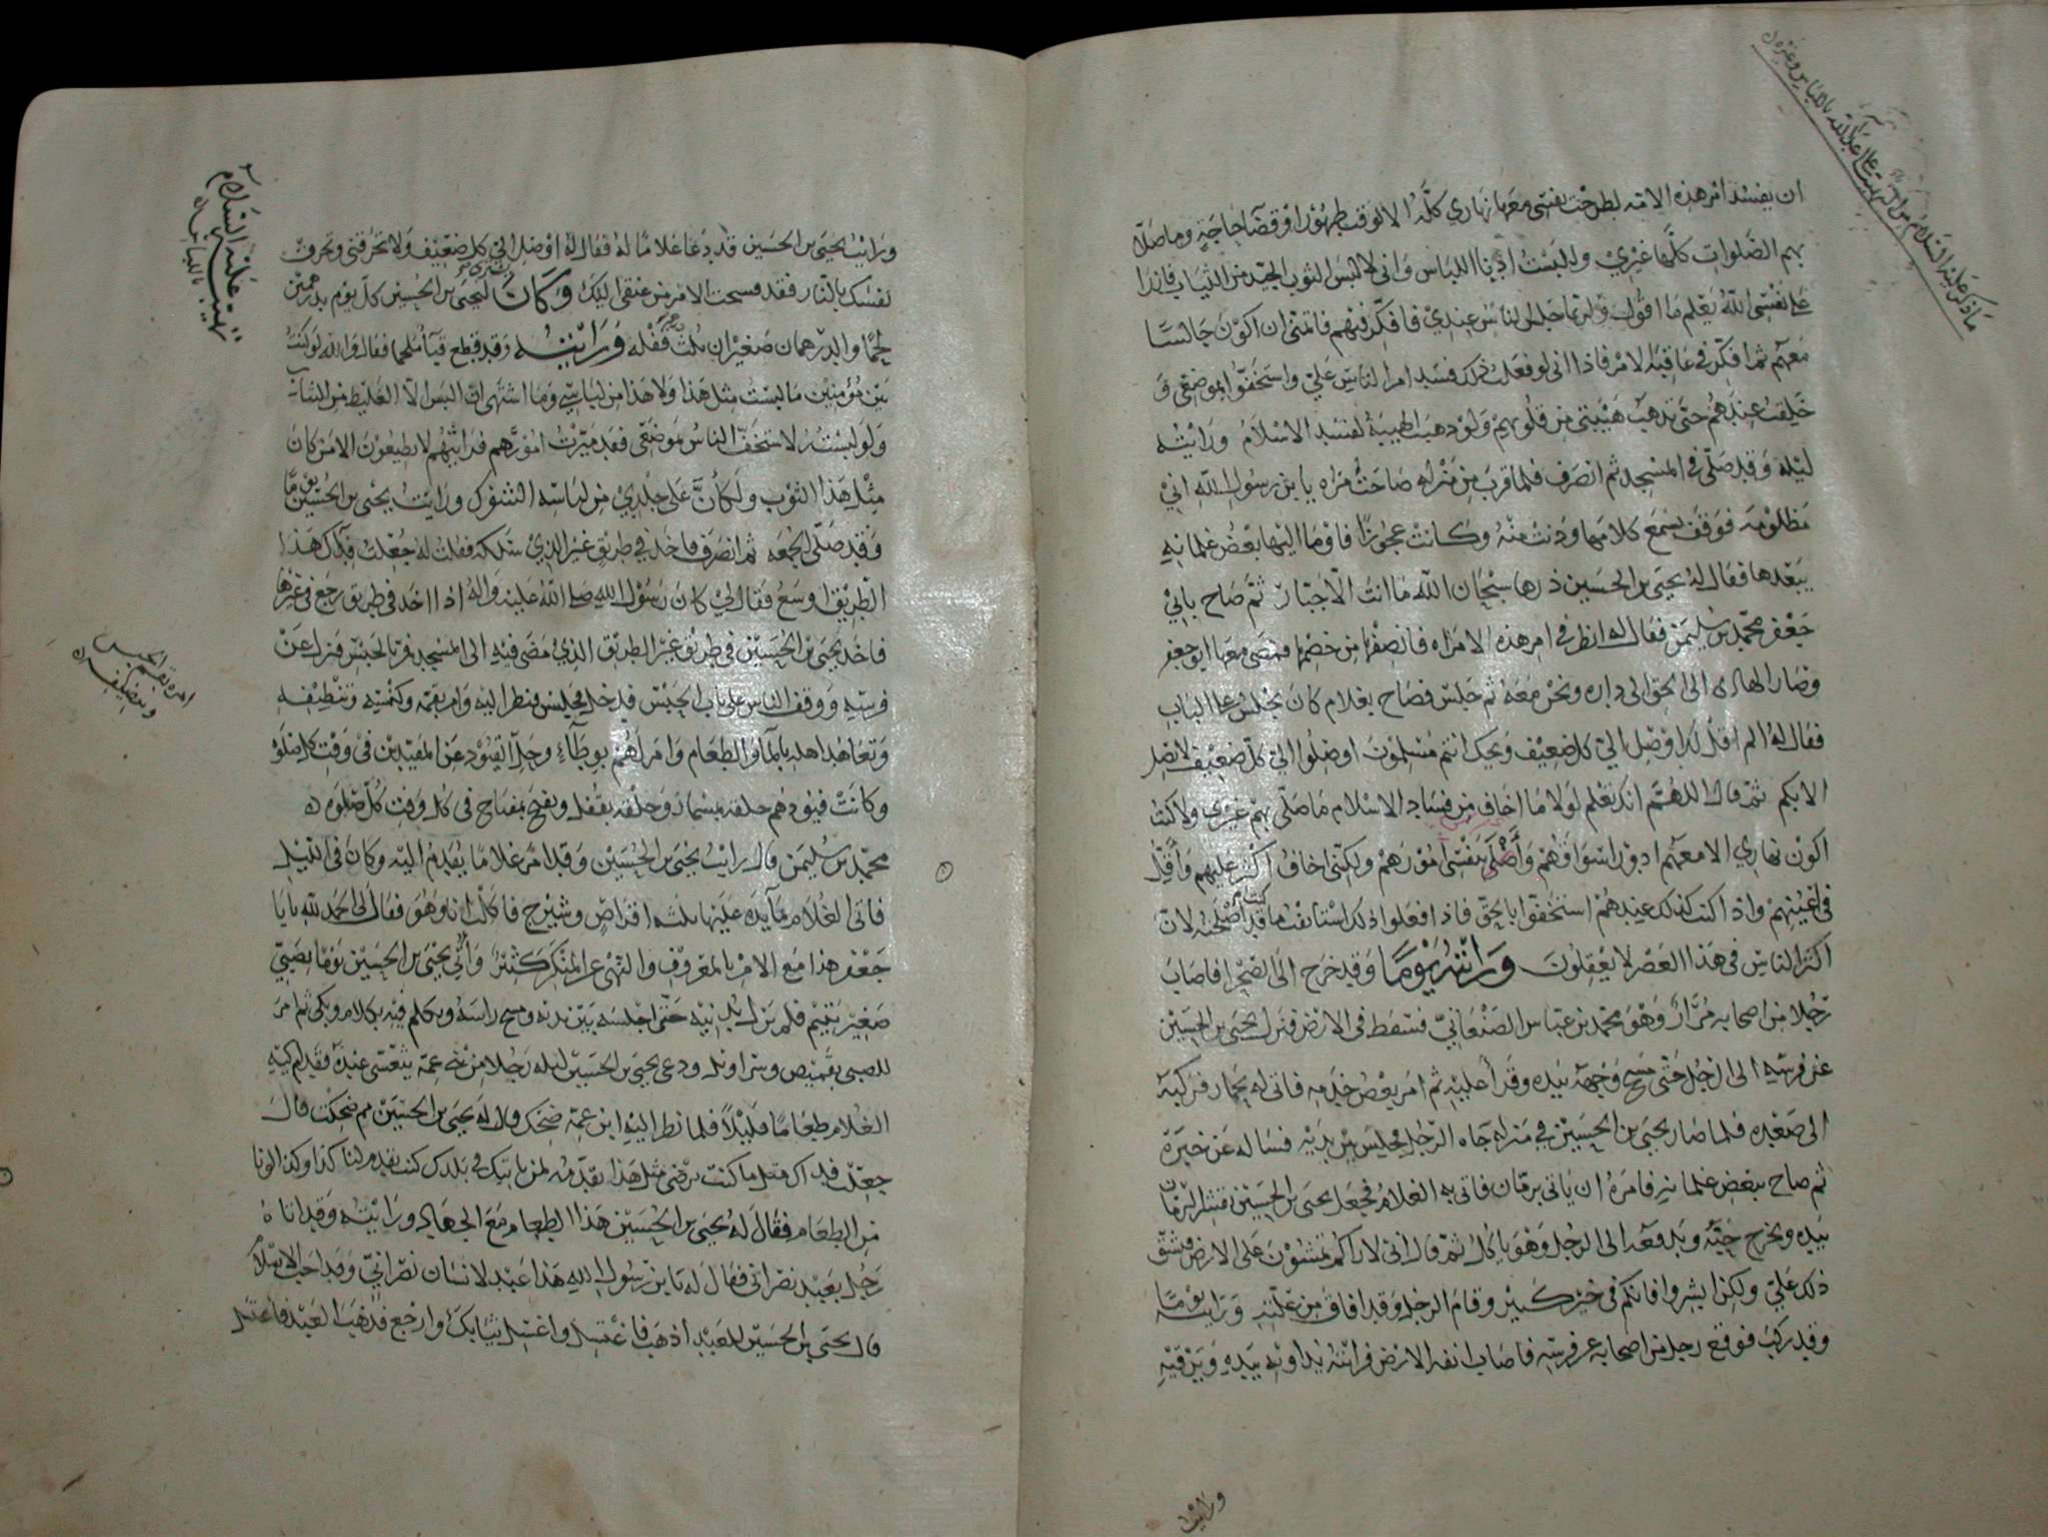 ما ذكر عليه السلام من أن تهيئته على أعين الله باللباس وغيره
ان يفسد امر هذه الامة لطرحت نفسي معها نهاري كله الا لوقت طهور او قضا حاجة وما صلا
بهم الصلوات كلها غيري وللبست ادنا اللباس واني لالبس الثوب الجيد من الثياب فاذرا
على نفسي الله يعلم ما اقول ولربما جلس الناس عندي فافكر فيهم فاتمنى ان اكون جالسا
معهم ثم افكر في عاقبة الامر فاذا اني لو فعلت ذلك فسد امر الناس علي واستخفوا بموضعي و
خلقت عندهم حتى تذهب هيبتي من قلوبهم ولو ذهبت الهيبة لفسد الاسلام ورايته
ليلة وقد صلى في المسجد ثم انصرف فلما قرب من منزله صاحت مراه يا بن رسول الله اني
مظلومة فوقف يسمع كلامها ودنت منه وكانت عجوزا فاوما اليها بعض غلمانه
يبعدها فقال له يحيى بن الحسين ذرها سبحان الله ما انت الا جبار ثم صاح بابي
جعفر محمد بن سليمن فقال له انظر في امر هذه الامراه فانصفها من خصمها فمضى معها ابو جعفر
وصار الهادي الى الحق الى داره ونحن معه ثم جلس فصاح بغلام كان يجلس على الباب
فقال له الم اقل لك اوصل الي كل ضعيف ويحك انتم مسلمون اوصلوا الي كل ضعيف لا نصل
الا بكم ثم قال اللهم انك تعلم لولا ما اخاف من فساد الاسلام ما صلى بهم غيري ولا كنت
اكون نهاري الا معهم ادور اسواقهم واصلي بنفسي امورهم ولكني اخاف اكثر عليهم واقل
في اعينهم واذا كنت كذلك عندهم استخفوا بالحق فاذا فعلوا ذلك استانفت ما قد اصلحته لان
اكثر الناس في هذا العصر لا يعقلون ورايته يوما وقد خرج الى الصحرا فاصاب
رجلا من اصحابه مرار وهو محمد بن عباس الصنعاني فسقط في الارض فنزل يحيى بن الحسين
عن فرسه الى الرجل حتى مسح وجهه بيده وقرا عليه ثم امر بعض خدمه فاتى له بحمار فركبه
الى صعده فلما صار يحيى بن الحسين في منزله جاه الرجل فجلس بين يديه فساله عن خبره
ثم صاح ببعض غلمانه فامره ان ياتي برمان فاتى به الغلام فجعل يحيى بن الحسين يقشر الرمان
بيده ويخرج حبه ويدفعه الى الرجل وهو ياكل ثم قال اني لاراكم تمشون على الارض فيشق
ذلك علي ولكن ابشروا فانكم في خير كبير وقام الرجل وقد افاق من علته ورايته يوما
وقد ركب فوقع رجل من اصحابه عن فرسه فاصاب انفه الارض فرايته يداويه بيده ويرقيه
ورايت
تهيئته عليه السلام باللباس
ورايت يحيى بن الحسين قد دعا غلاما له فقال له اوصل الي كل ضعيف ولا تحرقني وتحرق
نفسك بالنار فقد مسحت الامر من عنقي اليك وكان يشترى ليحيى بن الحسين كل يوم بدرهمين
لحما والدرهمان صغيران ثلث قفله ورايته وقد قطع قبا ملحما فقال والله لو كنت
بين مؤمنين ما لبست مثل هذا ولا هذا من لباسي وما اشتهي ان البس الا الغليظ من الثياب
ولو لبسته لاستخف الناس بموضعي فقد ميزت امورهم فرايتهم لا يطيعون الا من كان
مثل هذا الثوب ولكان على جلدي من لباسه الشوك ورايت يحيى بن الحسين يوما
وقد صلى الجمعه ثم انصرف فاخذ في طريق غير الذي سلكه فقلت له جعلت فداك هذا
الطريق اوسع فقال لي كان رسول الله صلى الله عليه واله اذا اخذ في طريق رجع في غيرها
فاخذ يحيى بن الحسين في طريق غير الطريق الذي مضى فيه الى المسجد فمر بالحبس فنزل عن
امره بتعهد الحبس وتنظيفه
فرسه ووقف الناس على باب الحبس فدخل فجلس فنظر اليه وامر بقمه وكنسه وتنظيفه
وتعاهد اهله بالماء والطعام وامر لهم بوطاء وحل القيود عن المقيدين في وقت كل صلوة
وكانت قيودهم حلقه بمسمار وحلقه بقفل ويفتح بمفتاح في كل وقت كل صلوه
محمد بن سليمن قال رايت يحيى بن الحسين وقد امر غلاما يقدم اليه وكان في الليل
فاتى الغلام بمايده عليها ثلثه اقراص وشيرج فاكلت انا وهو فقال لي احمد لله يابا
جعفر هذا مع الامر بالمعروف والنهي عن المنكر كثير واتي يحيى بن الحسين يوما بصبي
صغير يتيم فلم يزل يدنيه حتى اجلسه بين يديه ومسح راسه وتكلم فيه بكلام وبكى ثم امر
للصبي بقميص وسراويل ودعى يحيى بن الحسين ليله رجلا من بني عمه يتعشى عنده فقدم اليه
الغلام طعاما قليلا فلما نظر اليه ابن عمه ضحك قال له يحيى بن الحسين مم ضحكت قال
جعلت فداك مثلك ما كنت ترضى مثل هذا تقدمه لمن ياتيك في بلدك كنت تقدم لنا كذا وكذا لونا
من الطعام فقال له يحيى بن الحسين هذا الطعام مع الجهاد ورايته وقد اتاه
رجل بعبد نصراني فقال له يا بن رسول الله هذا عبد لانسان نصراني وقد احب الاسلام
قال يحيى بن الحسين للعبد اذهب فاغتسل واغسل ثيابك وارجع فذهب العبد فاغتسل